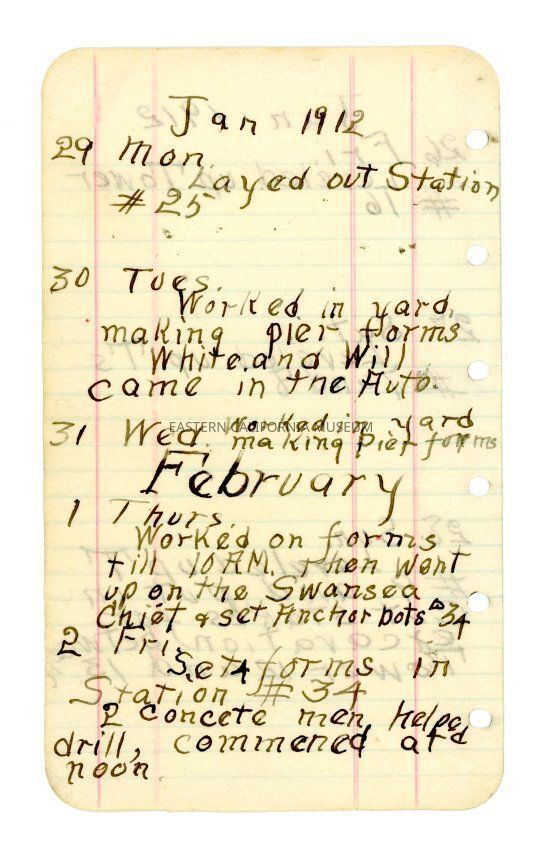 Jan 1912
29 Mon.
Layed out Station
# 25
30 Tues.
Worked in yard,
making pier forms
White and Will
came in the Auto.
31 Wed. Worked in yard
making pier forms
EASTERN CALIFORNIA MUSEUM
February
1 Thurs.
Worked on forms
till 10 AM. then went
up on the Swansea
Chief & set Anchor bots 34
2 Fri.
Set 4 forms in
Station # 34
2 concete men, helped
drill, commened at
noon.